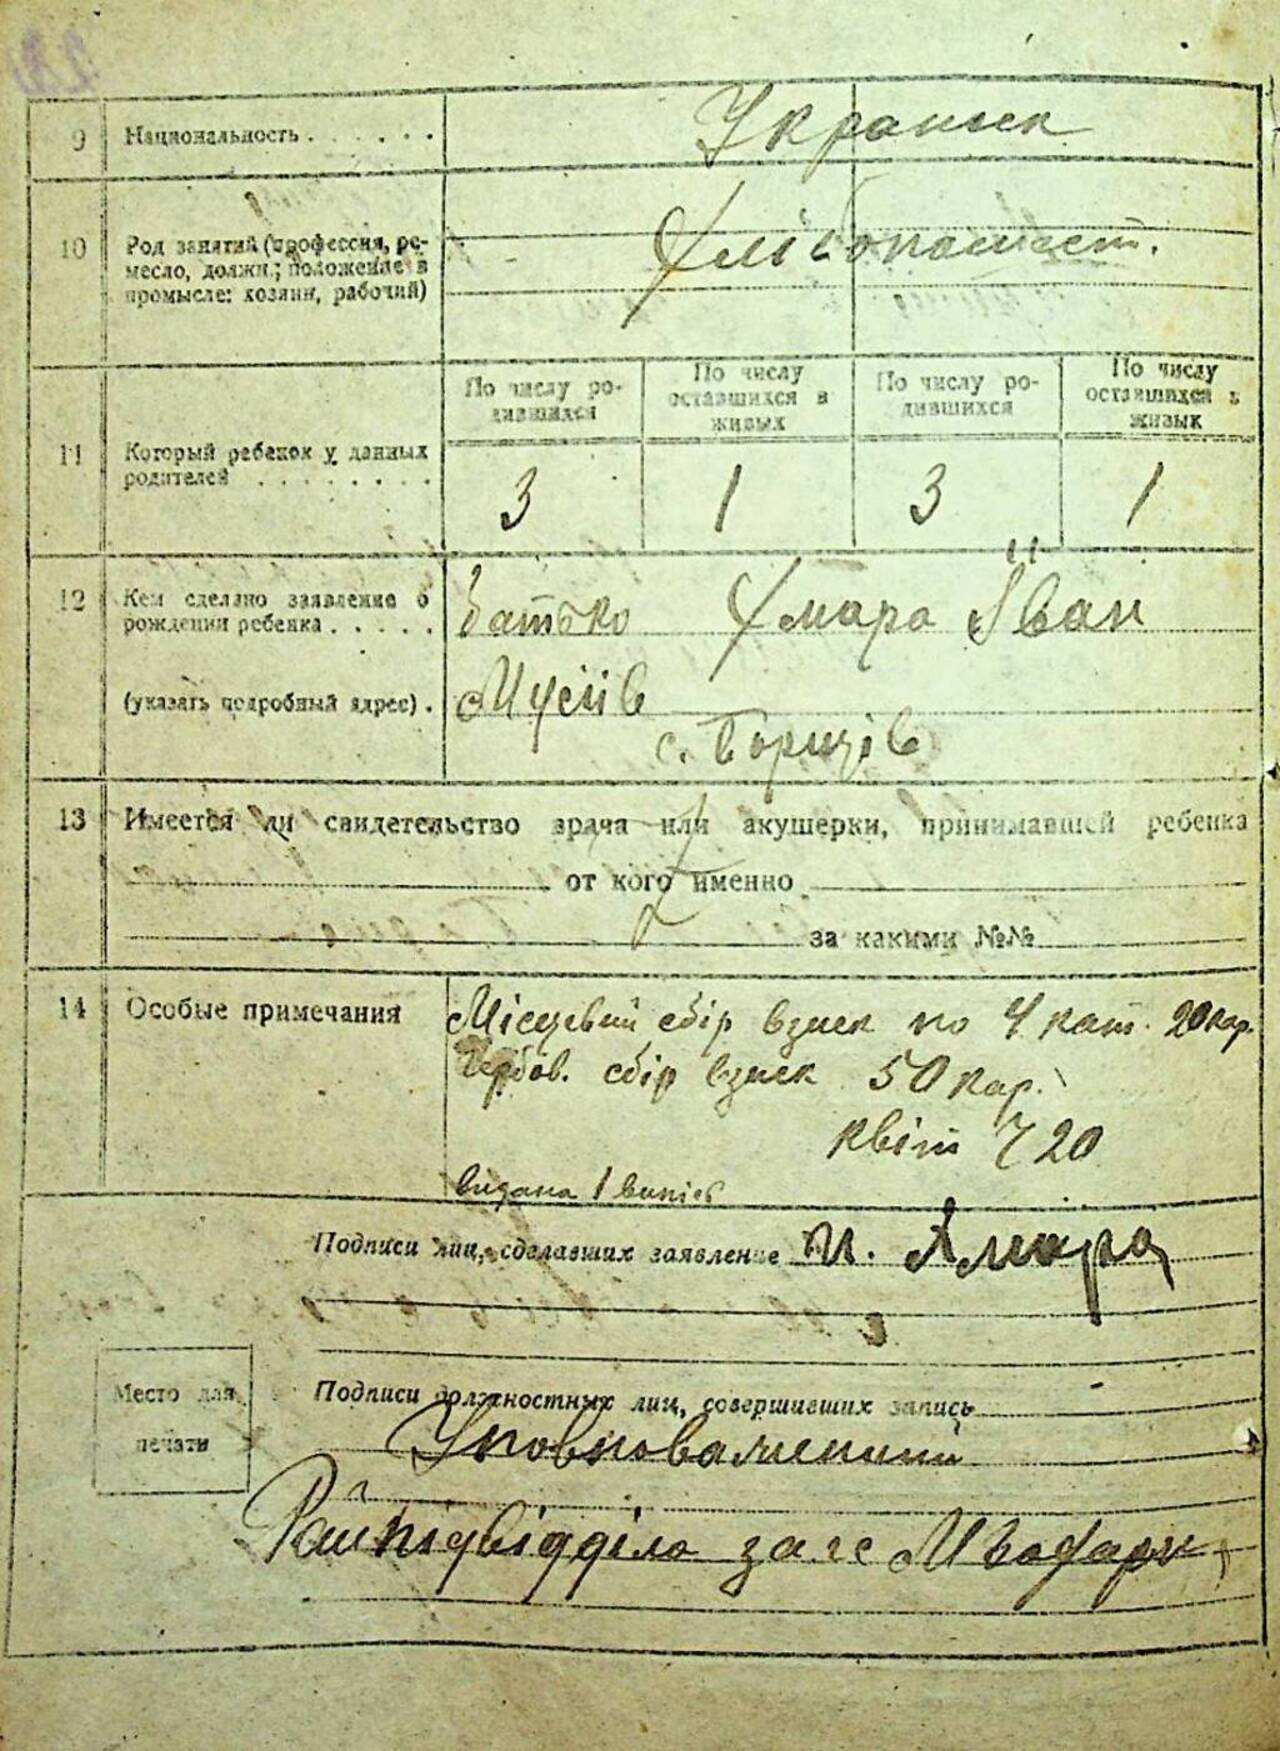 9 Национальность . . . . . . Украинск
10 Род занятий (профессия, ре-
месло, должн.; положение в
промысле: хозяин, рабочий) Хлібопашест.
По числу ро-
дившихся
По числу
оставшихся в
живых
По числу ро-
дившихся
По числу
оставшихся в
живых
11 Который ребенок у данных
родителей . . . . . . . . 3 1 3 1
12 Кем сделано заявление о
рождении ребенка . . . . . батько Хмара Іван
(указать подробный адрес) . Мусіїв
с. Борщів
13 Имеется ли свидетельство врача или акушерки, принимавшей ребенка
от кого именно
за какими №№
14 Особые примечания Місцевий сбір взиск по 4 кат. 20 кар.
Гербов. сбір взиск 50 кар.
квіт 720
видана 1 випись
Подписи лиц, сделавших заявление И. Хмара
Место для
печати
Подписи должностных лиц, совершивших запись
Уповноважений
Райпідвідділа загс